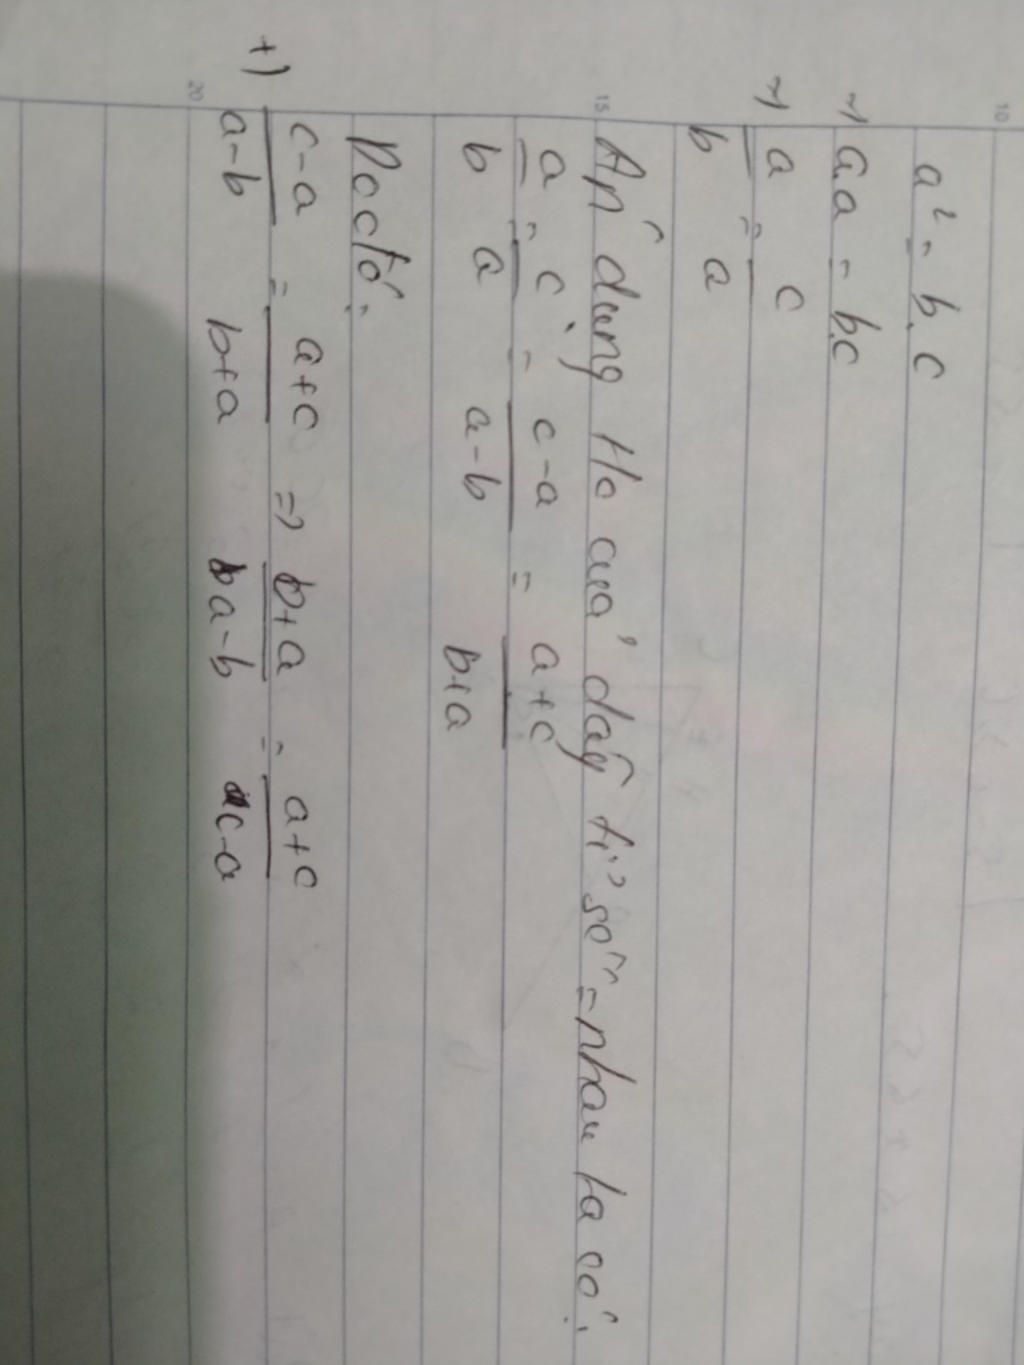 10
a² = b.c
→ a.a = b.c
→ a/b = c/a
15
Áp dụng t/c của dãy tỉ số = nhau ta có:
a/b = c/a = c-a/a-b = a+c/b+a
Do đó:
20
+) c-a/a-b = a+c/b+a => b+a/a-b = a+c/c-a